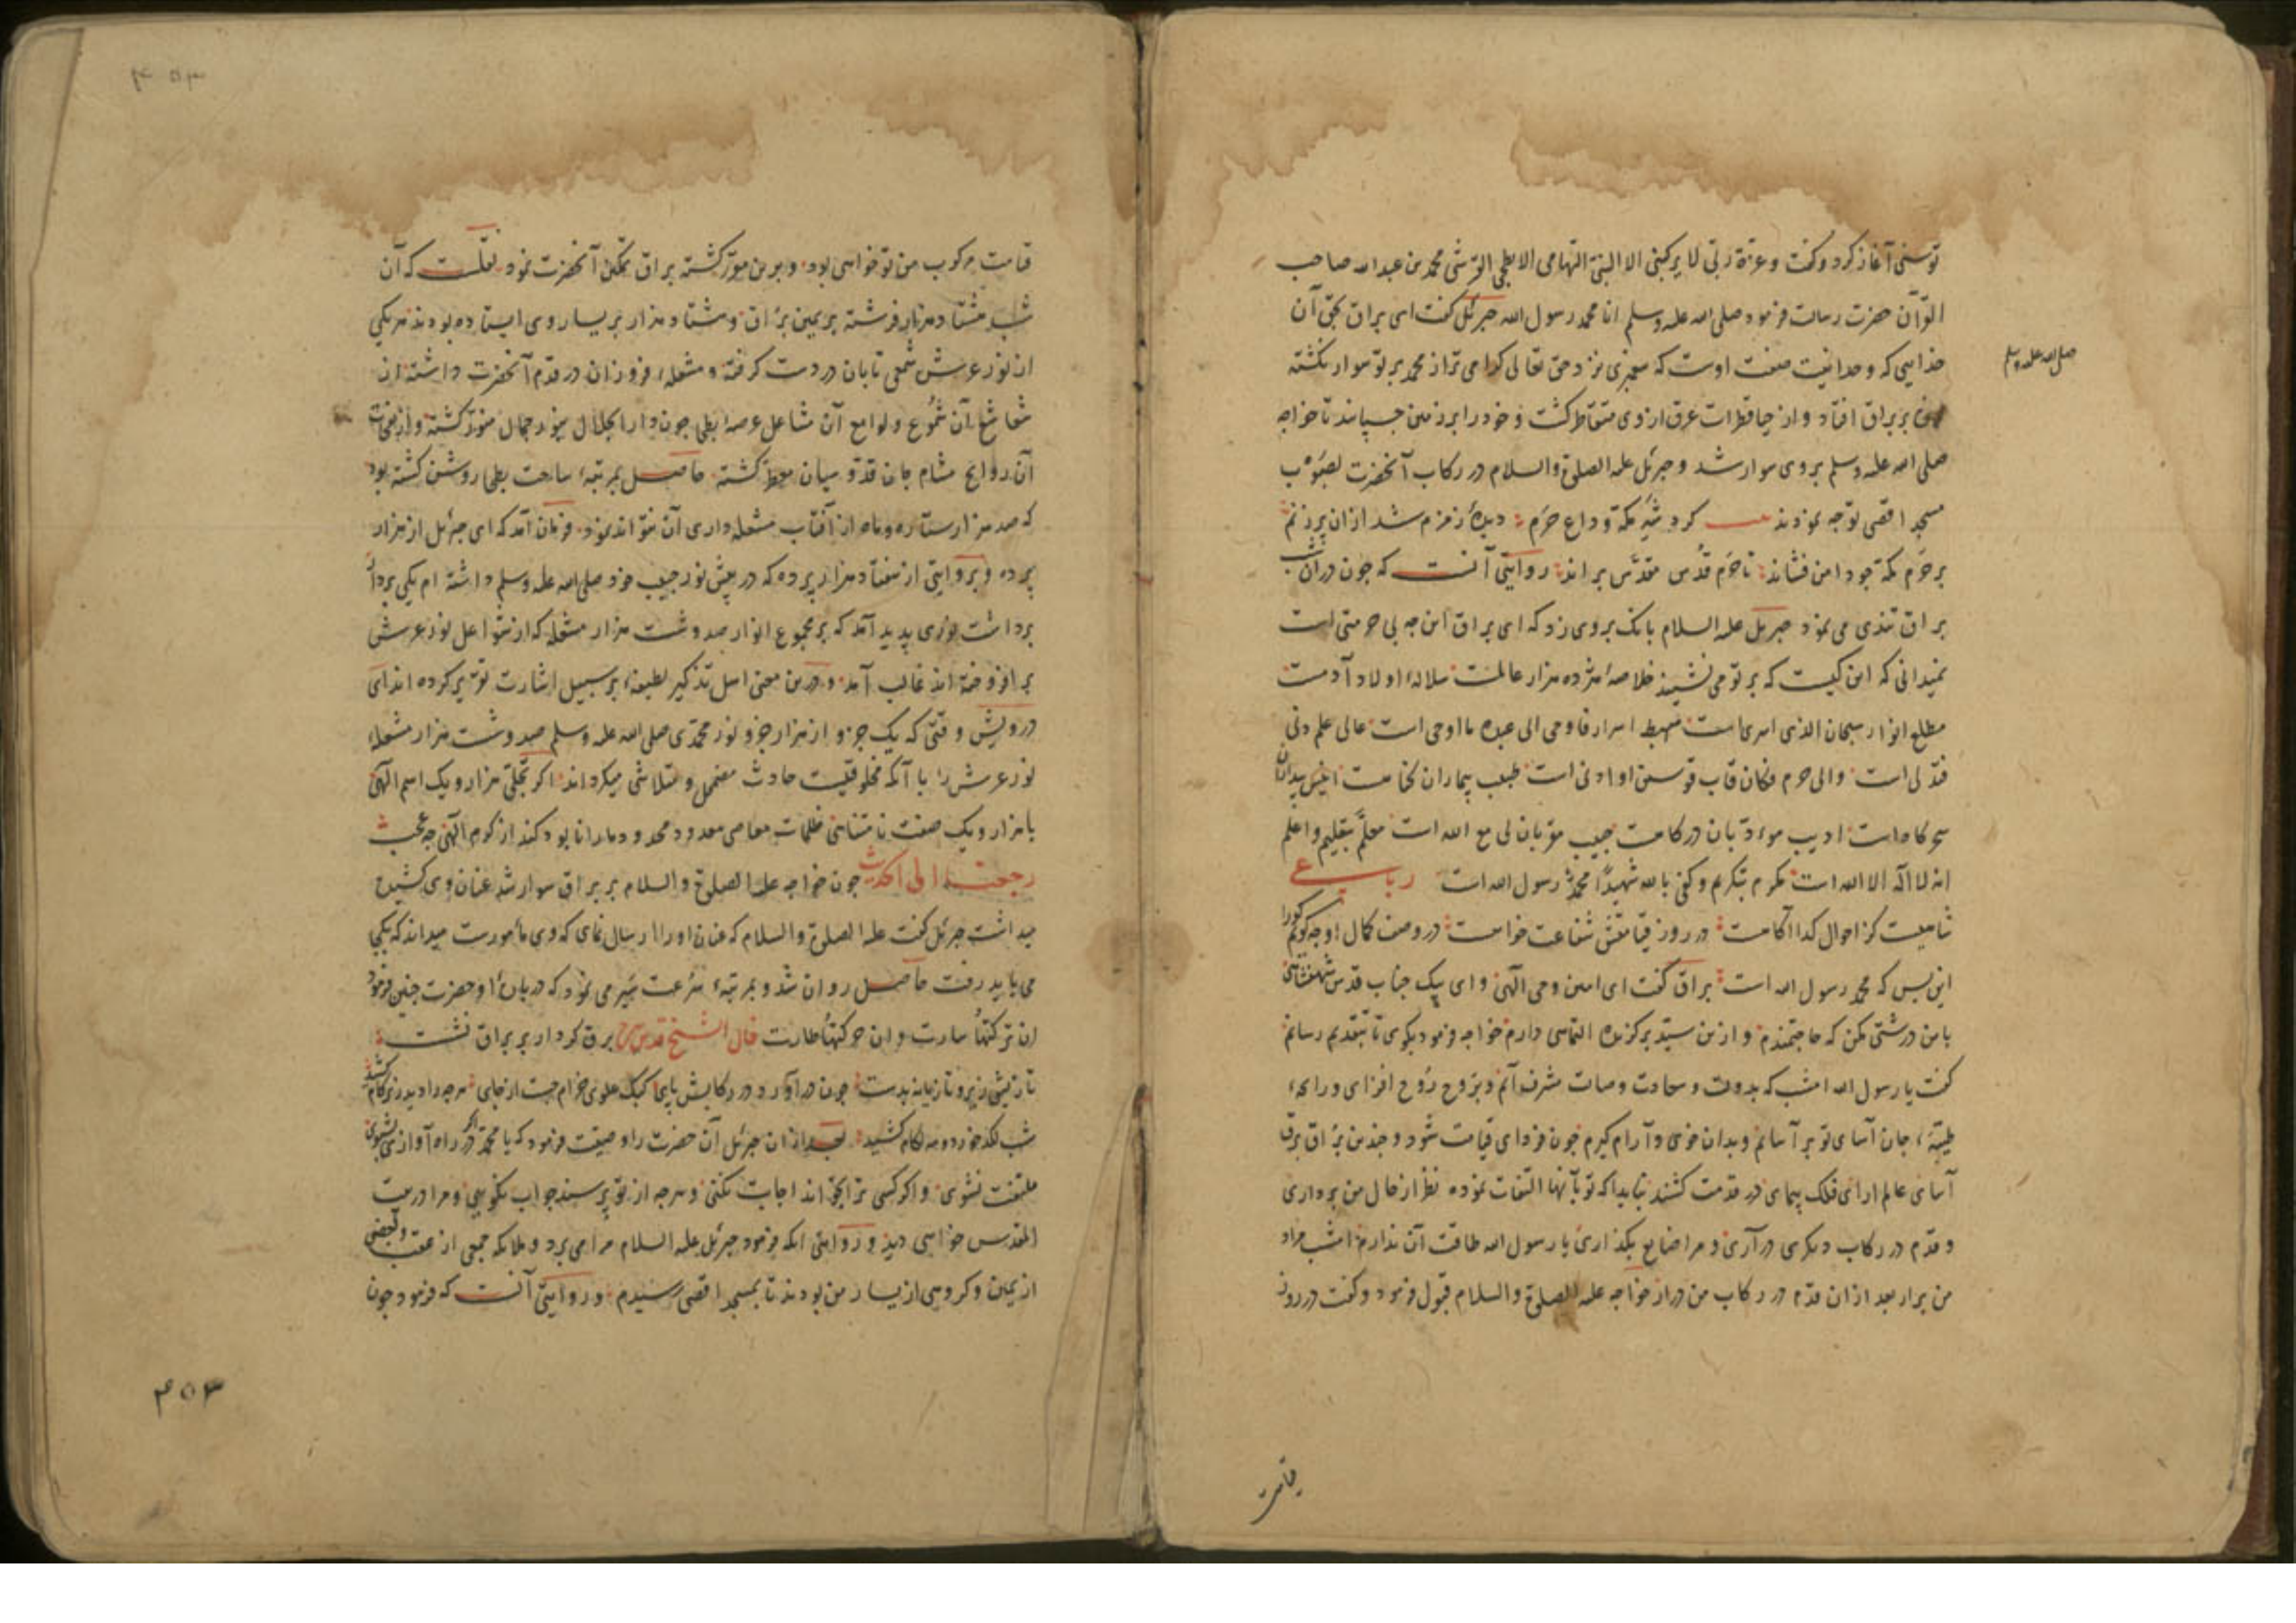 توسنی آغاز کرد و گفت وعزة ربی لا یرکبنی الا النبی التهامی الابطحی القرشی محمد بن عبد الله صاحب
القرآن حضرت رسالت فرمود صلی الله علیه وسلم انا محمد رسول الله جبرئیل گفت ای براق بحق آن
خدایی که وحدانیت صفت اوست که پیغمبری نزد حق تعالی گرامی تر از محمد بر تو سوار نگشته
صلی الله علیه وسلم
بر براق افتاد و از حیا قطرات عرق از وی متقاطر گشت و خود را بر زمین چسپانید تا خواجه
صلی الله علیه وسلم بر وی سوار شد و جبرئیل علیه الصلوة والسلام در رکاب آنحضرت بصوب
مسجد اقصی توجه نمودند کرد شه مکه وداع حرم دیده زمزم شد ازان پر ز نم
بر حرم مکه چو دامن فشاند تا حرم قدس مقدس براند روایتی آنست که چون در آن شب
براق تندی می نمود جبریل علیه السلام بانک بر وی زد که ای براق این چه بی حرمتی است
نمیدانی که این کیست که بر تو می نشیند خلاصه هژده هزار عالمست سلاله اولاد آدمست
مطلع انوار سبحان الذی اسری است مهبط اسرار فاوحی الی عبده ما اوحی است عالی علم دنی
فتدلی است والی حرم فکان قاب قوسین او ادنی است طبیب بیماران انیس بیداران
سحرگاه است ادیب مؤدبان درگاست حبیب مقربان لی مع الله است معلم بتعلیم واعلم
انه لا اله الا الله است مکرم بتکریم وکفی بالله شهیدا محمد رسول الله است رباعی
شاهیست کز احوال گدا آگاهست در روز قیامتش شفاعت خواهست در وصف کمال او چه گویم کورا
این بس که محمد رسول الله است براق گفت ای امین وحی الهی و ای پیک جناب قدس شهنشاهی
با من درشتی مکن که حاجتمندم و ازین سید برگزیده التماسی دارم خواجه فرمود بگوی تا بتقدیم رسانم
گفت یا رسول الله امشب که بدولت و سعادت وصالت مشرف آنم و بروح روح افزای و رایحه
طیبه جان آسای تو بر آسایم و بدان خوی و آرام گیرم چون فردای قیامت شود و چندین براق برق
آسای عالم آرای فلک پیمای در قدمت کشند نباید که تو بآنها التفات نموده نظر از حال من برداری
و قدم در رکاب دیگری درآری و مرا ضایع بگذاری یا رسول الله طاقت آن ندارم امشب مراد
من برار بعد ازان قدم در رکاب من درار خواجه علیه الصلوة والسلام قبول فرمود و گفت در روز
قیامت
۴۵۳
قیامت مرکوب من تو خواهی بود و برین مقرر گشته براق تمکین آنحضرت نمود نقلست که آن
شب هشتاد هزار فرشته بر یمین براق و هشتاد هزار بر یسار وی ایستاده بودند هر یکی
از نور عرش شمعی تابان در دست گرفته و مشعله فروزان در قدم آنحضرت داشته از
شعاشع آن شموع و لوامع آن مشاعل عرصه بطحا چون دار الجلال بنور جمال منور گشته و از نفحات
آن روایح مشام جان قدوسیان معطر گشته حاصل بمرتبه ساحت بطحا روشن گشته بود
که صد هزار ستاره و ماه از آفتاب مشعله داری آن نتواند نمود فرمان آمد که ای جبرئیل از هزار
پرده و بروایتی از هفتاد هزار پرده که در پیش نور حبیب خود صلی الله علیه وسلم داشته ام یکی بردار
برداشت نوری پدید آمد که بر مجموع انوار صد و شست هزار مشعله که از مشاعل نور عرش
برافروخته اند غالب آمد و درین معنی اهل تذکیر لطیفه بر سبیل اشارت تقریر کرده اند ای
درویش وقتی که یک جزو از هزار جزو نور محمدی صلی الله علیه وسلم صد و شست هزار مشعله
نور عرش را با آنکه مخلوقیست حادث مضمحل و متلاشی میگرداند اگر تجلی هزار و یک اسم الهی
با هزار و یک صفت نامتناهی ظلمات معاصی معدود محدود ما را نابود کند از کرم الهی چه عجب
رجعنا الی الحدیث چون خواجه علیه الصلوة والسلام بر براق سوار شد عنان وی کشیده
میداشت جبرئیل گفت علیه الصلوة والسلام که عنان او را ارسال نمای که وی مأمورست میداند که بکجا
می باید رفت حاصل روان شد و بمرتبه سرعت سیر می نمود که در بیان او حضرت چنین فرمود
ان ترکتها سارت وان حرکتها طارت قال الشیخ قدس سره برق کردار بر براق نشست
تازیش زیر و تازیانه بدست چون درآورد در رکابش پای کبک علوی خرام جست از جای هرچه را دید زیر گام کشید
شب لگد خورد و مه لگام کشید بعد ازان جبرئیل آن حضرت را وصیت فرمود که یا محمد اگر در راه آوازی بشنوی
ملتفت نشوی و اگر کسی ترا بخواند اجابت نکنی و هرچه از تو پرسند جواب نگویی و مرا در بیت
المقدس خواهی دید و روایتی آنکه فرمود جبرئیل علیه السلام مرا می برد و ملائکه جمعی از عقب و بعضی
از یمین و گروهی از یسار من بودند تا بمسجد اقصی رسیدم و روایتی آنست که فرمود چون
۴۵۳